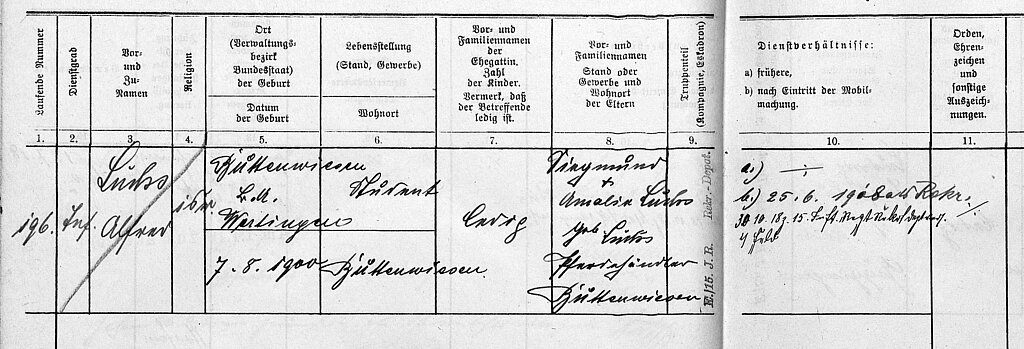 Laufende Nummer
Dienstgrad
Vor-
und
Zu-
Namen
Religion
Ort
(Verwaltungs-
bezirk
Bundesstaat)
der Geburt
Datum
der Geburt
Lebensstellung
(Stand, Gewerbe)
Wohnort
Vor- und
Familiennamen
der
Ehegattin.
Zahl
der Kinder.
Vermerk, daß
der Betreffende
ledig ist.
Vor- und
Familiennamen
Stand oder
Gewerbe und
Wohnort
der Eltern
Truppenteil
(Kompagnie, Eskadron)
Dienstverhältnisse:
a) frühere,
b) nach Eintritt der Mobil-
machung.
Orden,
Ehren-
zeichen
und
sonstige
Auszeich-
nungen.
1. 2. 3. 4. 5. 6. 7. 8. 9. 10. 11.
196.
Inf.
Luchs
Alfred
isr.
Buttenwiesen
B.A.
Wertingen
7. 8. 1900
Student
Buttenwiesen.
ledig
Siegmund
+
Amalie Luchs
geb. Luchs
Pferdehändler
Buttenwiesen
E./15. J. R. Rekr.-Depot.
a.) ÷
b.) 25. 6. 1918 als Rekr.
30. 10. 18 z. 15.